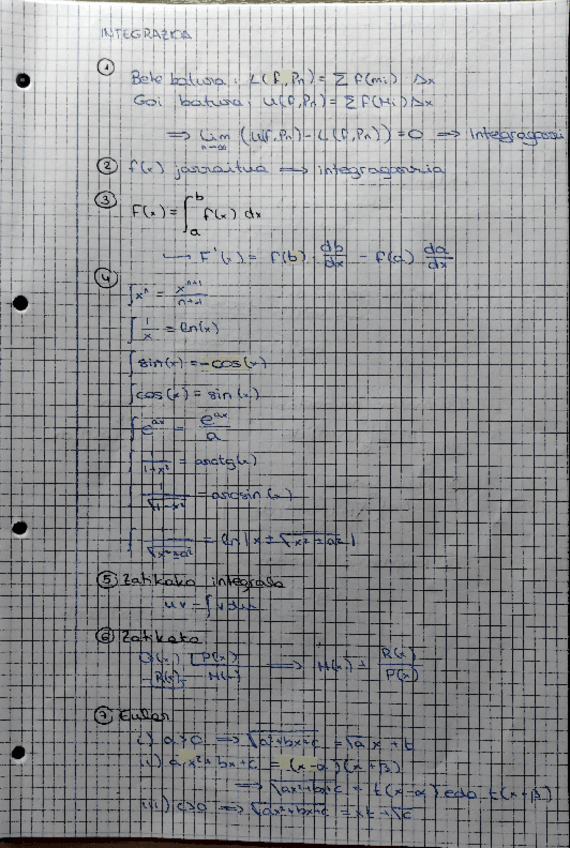 INTEGRAZIOA
① Behe batura: L(f,Pn) = ∑ f(mi) Δx
Goi batura: U(f,Pn) = ∑ f(Mi) Δx
⟹ lim n→∞ (U(f,Pn) - L(f,Pn)) = 0 ⟹ Integragarri
② f(x) jarraitua ⟹ integragarria
③ F(x) = ∫_a^b f(x) dx
→ F'(x) = f(b) · db/dx - f(a) da/dx
④ ∫x^n = x^(n+1)/(n+1)
∫ 1/x = ln(x)
∫ sin(x) = -cos(x)
∫ cos(x) = sin(x)
∫ e^(ax) = e^(ax)/a
∫ 1/(1+x²) = arctg(x)
∫ 1/√(1-x²) = arcsin(x)
∫ 1/√(x²±a²) = ln|x±√(x²±a²)|
⑤ Zatikako integrala
uv - ∫ v du
⑥ Zatiketa
P(x)
R(x) M(x) ⟹ M(x) + R(x)/P(x)
⑦ Euler
i) a>0 ⟹ √(a²+bx+c) = √a x + t
ii) ax²+bx+c = (x-α)(x+β)
⟹ √(ax²+bx+c) = t(x-α) edo t(x+β)
iii) c>0 ⟹ √(ax²+bx+c) = xt + √c